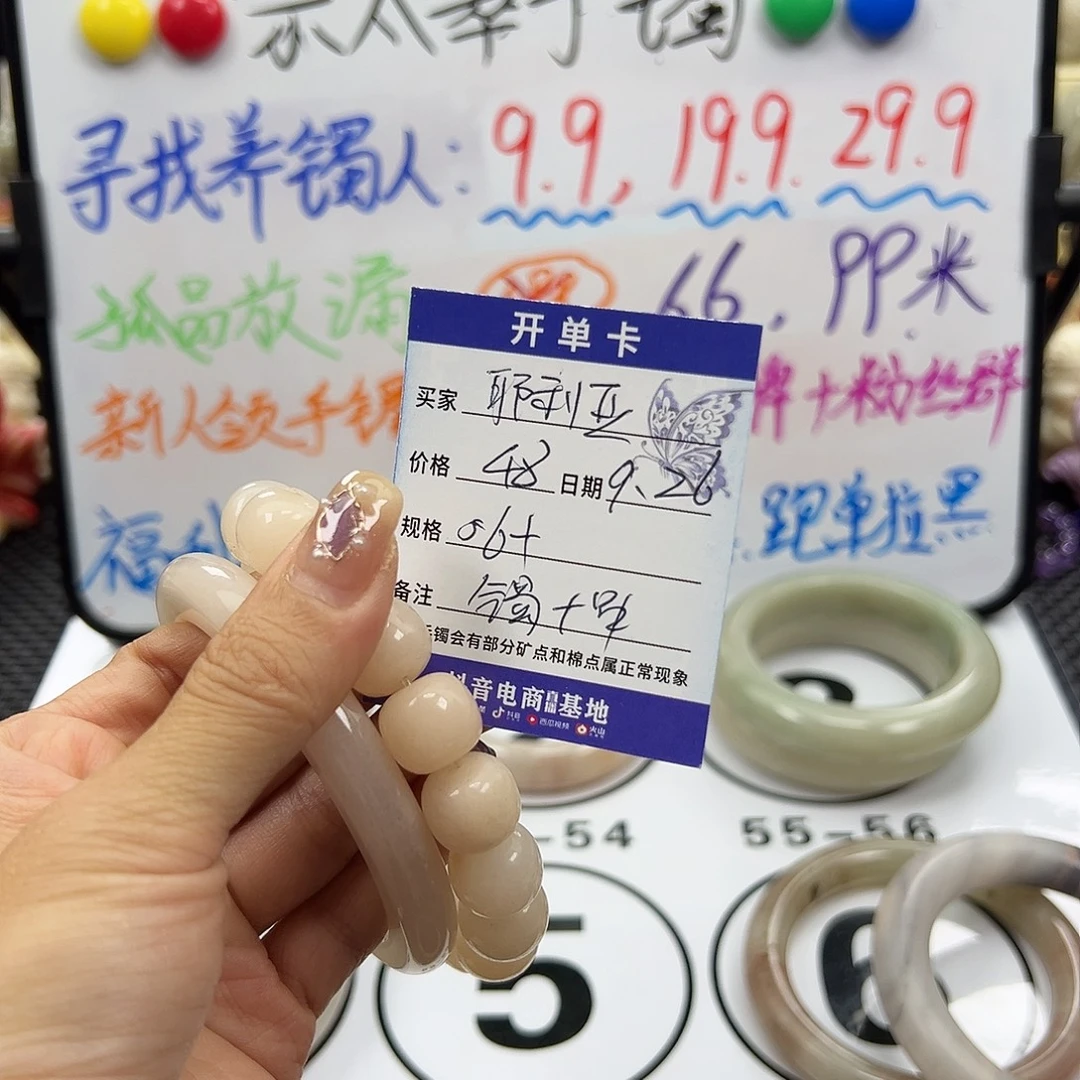 寻找养镯人: 9.9, 19.9. 29.9
孤品放漏 66. PP米
新人领手镯 牌十粉丝群
福利 跑单拉黑
开单卡
买家 耶利亚
价格 48 日期 9.26
规格 06+
备注 镯+串
手镯会有部分矿点和棉点属正常现象
抖音电商直播基地
抖音 西瓜视频 火山
-54
55-56
5
6